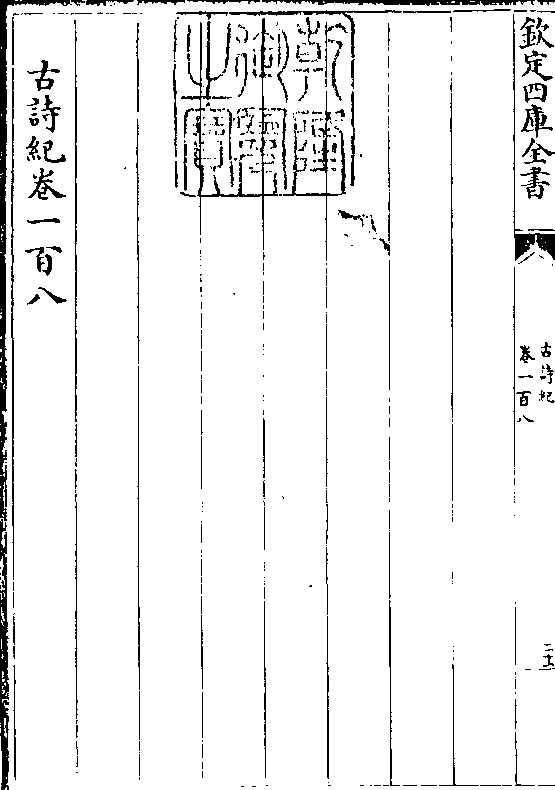 欽定四庫全書
古詩紀
卷一百八
乾隆御覽之寶
古詩紀卷一百八